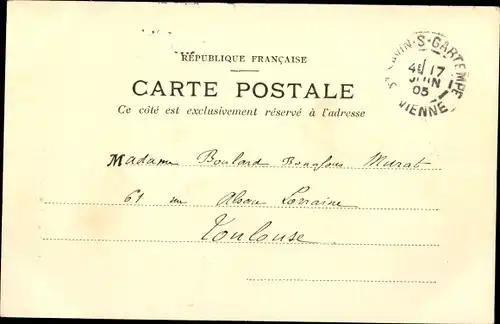 RÉPUBLIQUE FRANÇAISE
CARTE POSTALE
Ce côté est exclusivement réservé à l'adresse
ST SAVIN-S-GARTEMPE
4E 17
JUIN
05
VIENNE
Madame Boulard Murat
61 rue Alsace Lorraine
Toulouse